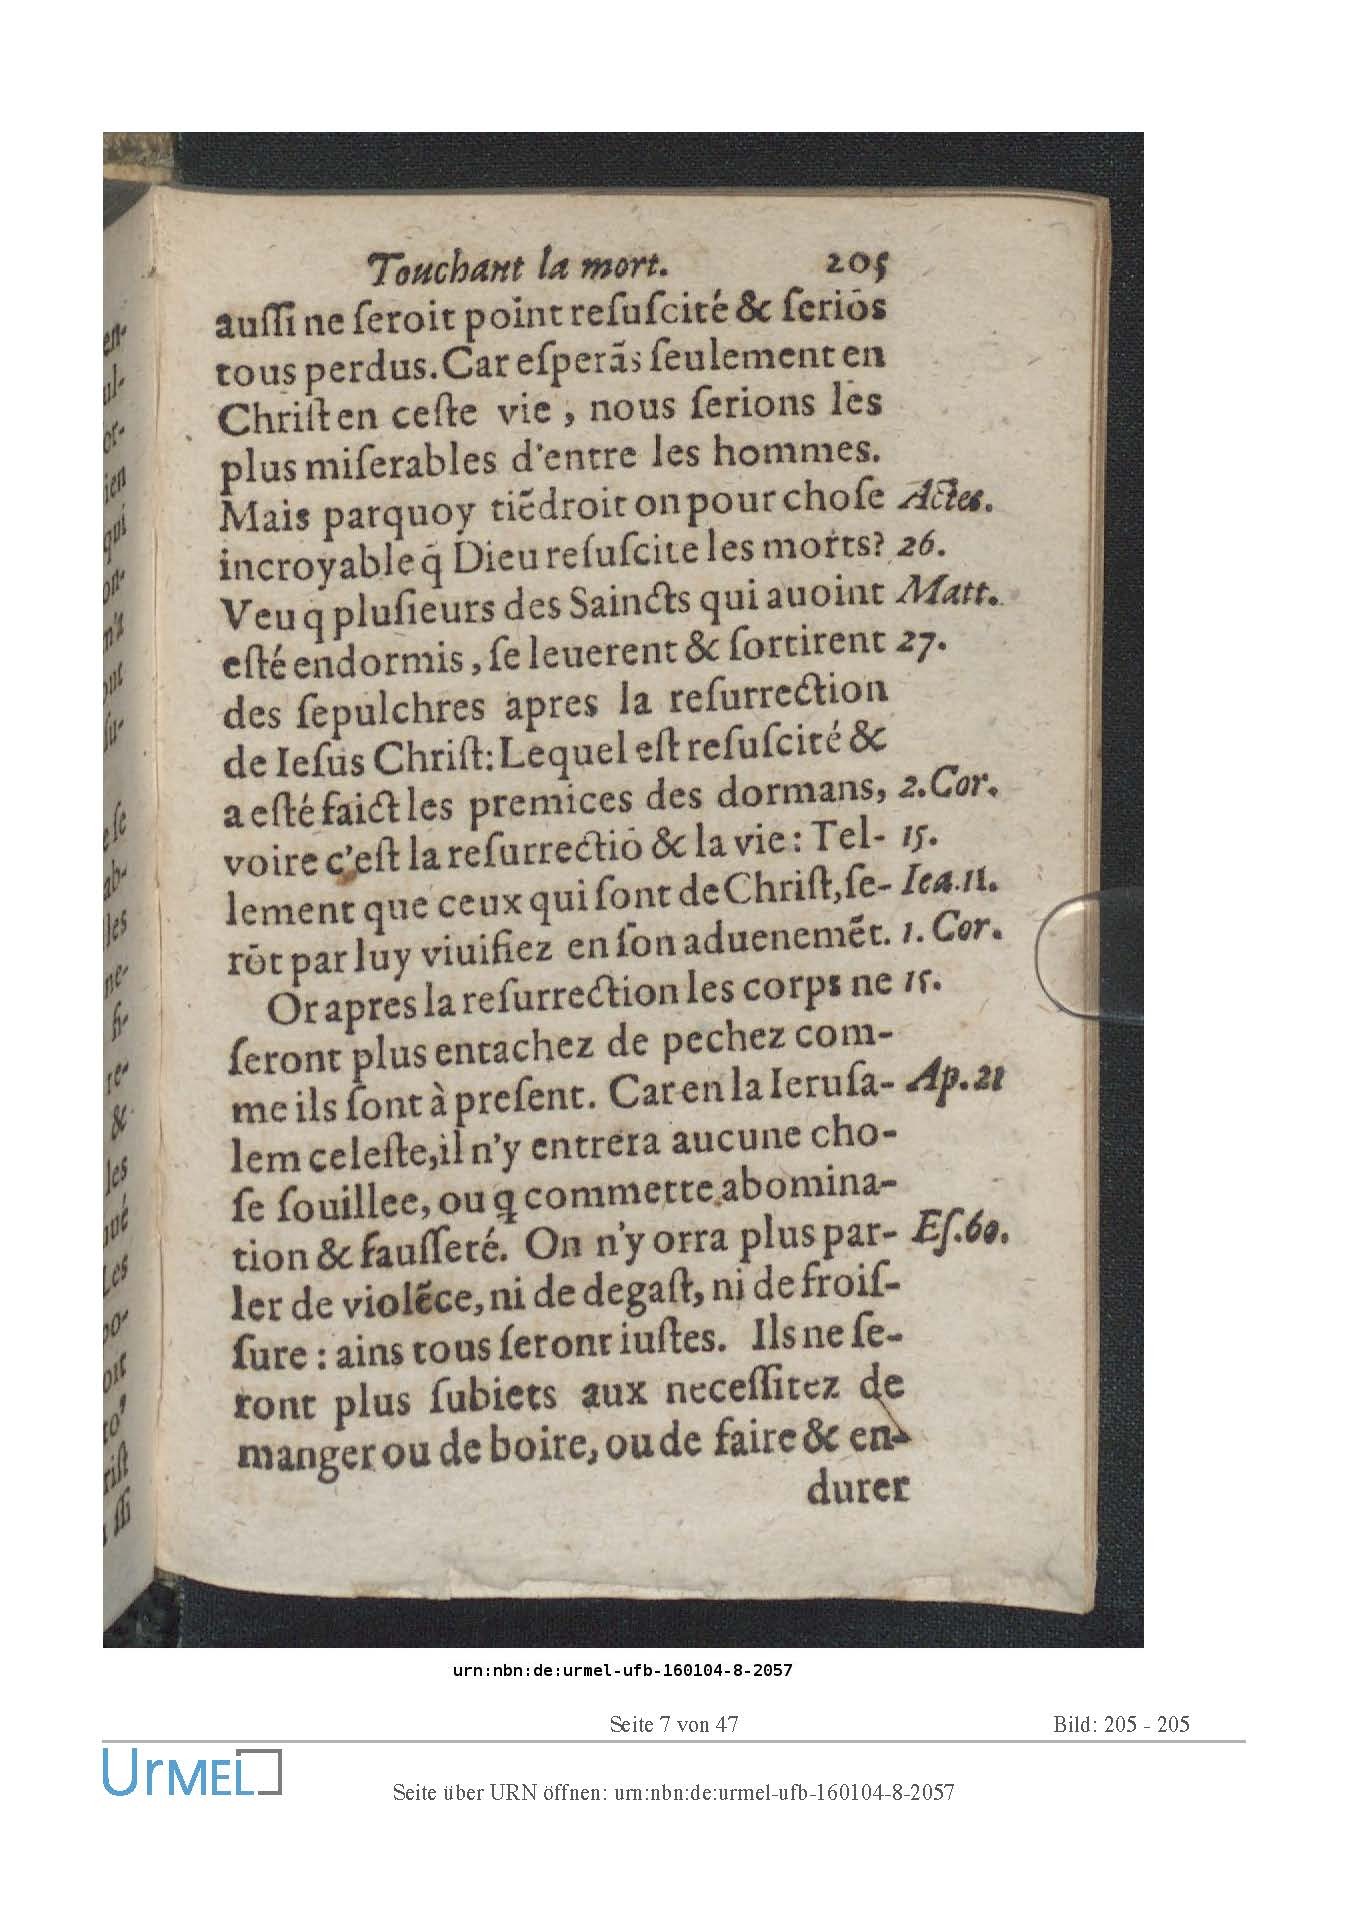 Touchant la mort. 205
auſſi ne ſeroit point reſuſcité & ſeriōs
tous perdus. Car eſperās ſeulement en
Chriſt en ceſte vie, nous ſerions les
plus miſerables d'entre les hommes.
Mais parquoy tiēdroit on pour choſe Actes.
incroyable q̄ Dieu reſuſcite les morts? 26.
Veu q pluſieurs des Saincts qui auoint Matt.
eſté endormis, ſe leuerent & ſortirent 27.
des ſepulchres apres la reſurrection
de Ieſus Chriſt: Lequel eſt reſuſcité &
a eſté faict les premices des dormans, 2. Cor.
voire c'eſt la reſurrectiō & la vie: Tel- 15.
lement que ceux qui ſont de Chriſt, ſe- Iea. 11.
rōt par luy viuifiez en ſon aduenemēt. 1. Cor.
Or apres la reſurrection les corps ne 15.
ſeront plus entachez de pechez com-
me ils ſont à preſent. Car en la Ieruſa- Ap. 21
lem celeſte, il n'y entrera aucune cho-
ſe ſouillee, ou q commette abomina-
tion & fauſſeté. On n'y orra plus par- Eſ. 60.
ler de violēce, ni de degaſt, ni de froiſ-
ſure: ains tous ſeront iuſtes. Ils ne ſe-
ront plus ſubiets aux neceſſitez de
manger ou de boire, ou de faire & en-
durer
urn:nbn:de:urmel-ufb-160104-8-2057
Seite 7 von 47 Bild: 205 - 205
UrMEL
Seite über URN öffnen: urn:nbn:de:urmel-ufb-160104-8-2057